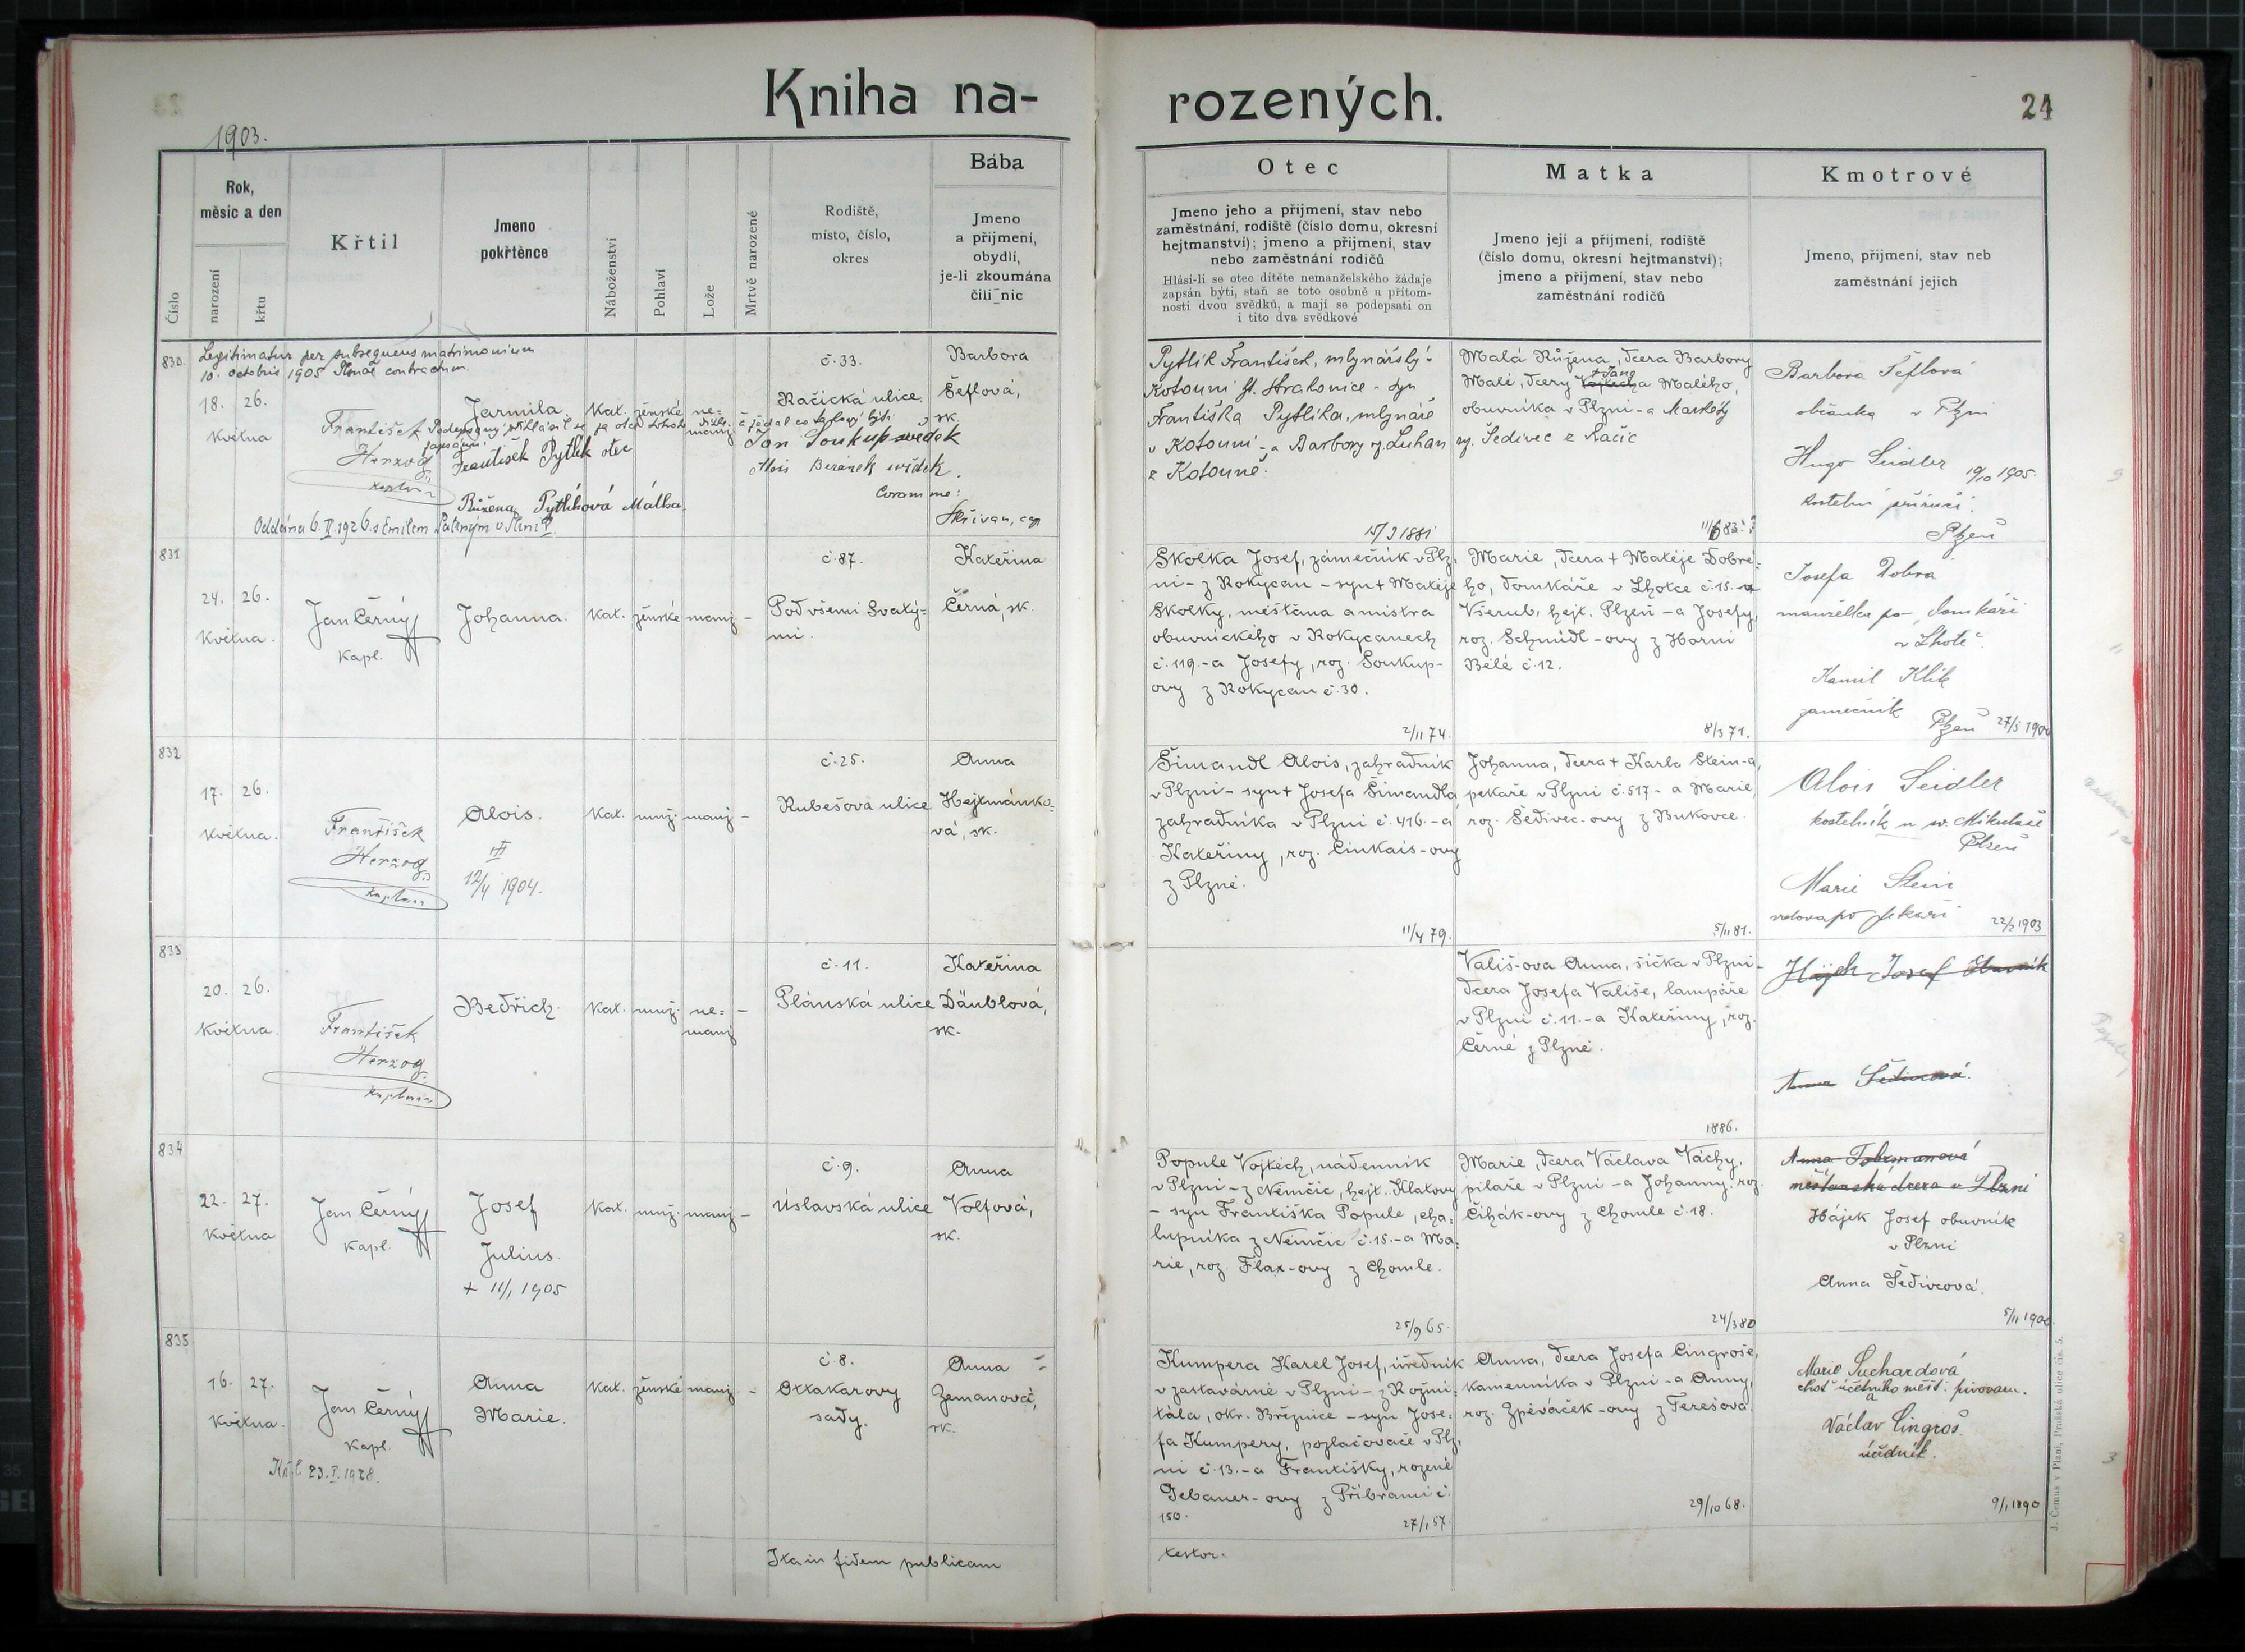 Kniha na-
rozených.
24
1903.
Číslo
Rok,
měsíc a den
narození
křtu
Křtil
Jmeno
pokřtěnce
Náboženství
Pohlaví
Lože
Mrtvě narozené
Rodiště,
místo, číslo,
okres
Bába
Jmeno
a přijmení,
obydlí,
je-li zkoumána
čili nic
Otec
Jmeno jeho a přijmení, stav nebo
zaměstnání, rodiště (číslo domu, okresní
hejtmanství); jmeno a přijmení, stav
nebo zaměstnání rodičů
Hlásí-li se otec dítěte nemanželského žádaje
zapsán býti, staň se toto osobně u přítom-
nosti dvou svědků, a mají se podepsati on
i tito dva svědkové
Matka
Jmeno její a přijmení, rodiště
(číslo domu, okresní hejtmanství);
jmeno a přijmení, stav nebo
zaměstnání rodičů
Kmotrové
Jmeno, přijmení, stav neb
zaměstnání jejich
830.
Legitimatur per subsequens matrimonium
10. Octobris 1905 contractum.
18. 26.
Května
František
Herzog
kaplan
Jarmila.
Kat.
ženské
ne-
manž.
č. 33.
Račická ulice.
Barbora
Šeflová,
sk.
František Pytlík otec
Jan Soukup svědek
Alois Beránek svědek.
Růžena Pytlíková Matka.
Coram me:
Skřivan, cap
Oddána 6.II.1926 s Emilem
Pytlík František, mlynářský
Kotouni Strakonice - syn
Františka Pytlíka, mlynáře
v Kotouni - a Barbory r. Luhan
z Kotouně.
15/3 1881
Malá Růžena, dcera Barbory
Malé, dcery Vojtěcha + Jana Malého,
obuvníka v Plzni - a Markéty
roz. Šedivec z Račic
11/6 83.
Barbora Šeflova
občanka v Plzni
Hugo Seidler 19/10 1905.
kostelní
Plzeň
831
24. 26.
Května.
Jan Černý
Kapl.
Johanna.
Kat.
ženské
manž
-
č. 87.
Pod všemi Svatý-
mi.
Kateřina
Černá, sk.
Skolka Josef, zámečník v Plz-
ni - z Rokycan - syn + Matěje
Skolky, měšťana a mistra
obuvnického v Rokycanech
č. 119. - a Josefy, roz. Soukup-
ovy z Rokycan č. 30.
2/11 74.
Marie, dcera + Matěje Dobré-
ho, domkáře v Lhotce č. 15. -
Všerub, hejt. Plzeň - a Josefy,
roz. Schmidl-ovy z Horní
Bělé č. 12.
8/3 71.
Josefa Dobrá
manželka po domkáři
v Lhotě
Kamil Klik
zámečník
Plzeň 27/5 1900
832
17. 26.
Května.
František
Herzog
kaplan
Alois.
12/4 1904.
Kat.
muž.
manž
-
č. 25.
Rubešova ulice
Anna
Hejtmánko-
vá, sk.
Šimandl Alois, zahradník
v Plzni - syn + Josefa Šimandla,
zahradníka v Plzni č. 416. - a
Kateřiny, roz. Cinkais-ovy
z Plzně.
11/4 79.
Johanna, dcera + Karla Stein-a,
pekaře v Plzni č. 517 - a Marie,
roz. Šedivec-ovy z Bukovce.
5/11 81.
Alois Seidler
kostelník u sv. Mikuláše
Plzeň
Marie Stein
vdova po pekaři 22/2 1903
833
20. 26.
Května.
František
Herzog
kaplan
Bedřich.
Kat.
muž.
ne-
manž
-
č. 11.
Plánská ulice
Kateřina
Däublová,
sk.
Vališ-ova Anna, šička v Plzni -
dcera Josefa Vališe, lampáře
v Plzni č. 11. - a Kateřiny, roz.
Černé z Plzně.
1886.
Hájek Josef obuvník
Anna Šedivcová.
834
22. 27.
Května
Jan Černý
Kapl.
Josef
Julius.
+ 11/1 1905
Kat.
muž.
manž
-
č. 9.
Úslavská ulice
Anna
Volfová,
sk.
Popule Vojtěch, nádenník
v Plzni - z Němčic, hejt. Klatovy
- syn Františka Popule, cha-
lupníka z Němčic č. 15. - a Ma-
rie, roz. Flax-ovy z Chomle.
25/9 65.
Marie, dcera Václava Váchy,
pilaře v Plzni - a Johanny, roz.
Čihák-ovy z Chomle č. 18.
24/3 80
měšťanská dcera v Plzni
Hájek Josef obuvník
v Plzni
Anna Šedivcová.
5/11 1900
835
16. 27.
Května.
Jan Černý
Kapl.
Anna
Marie.
Kat.
ženské
manž
-
č. 8.
Ottakarovy
sady.
Anna
Zemanová,
sk.
23.I.1928.
Kumpera Karel Josef, úředník
v zastavárně v Plzni - z Rožmi-
tála, okr. Březnice - syn Jose-
fa Kumpery, pozlačovače v Plz-
ni č. 13. - a Františky, rozené
Gebauer-ovy z Příbrami č.
150.
27/1 57.
Anna, dcera Josefa Cingroše,
kamenníka v Plzni - a Anny,
roz. Zpěváček-ovy z Terešova.
29/10 68.
Marie Suchardová
choť účetního měšť. pivovaru.
a
Václav Cingroš
úředník.
9/1 1890
Ita in fidem publicam
testor.
J. Čemus v Plzni, Pražská ulice čís. 5.